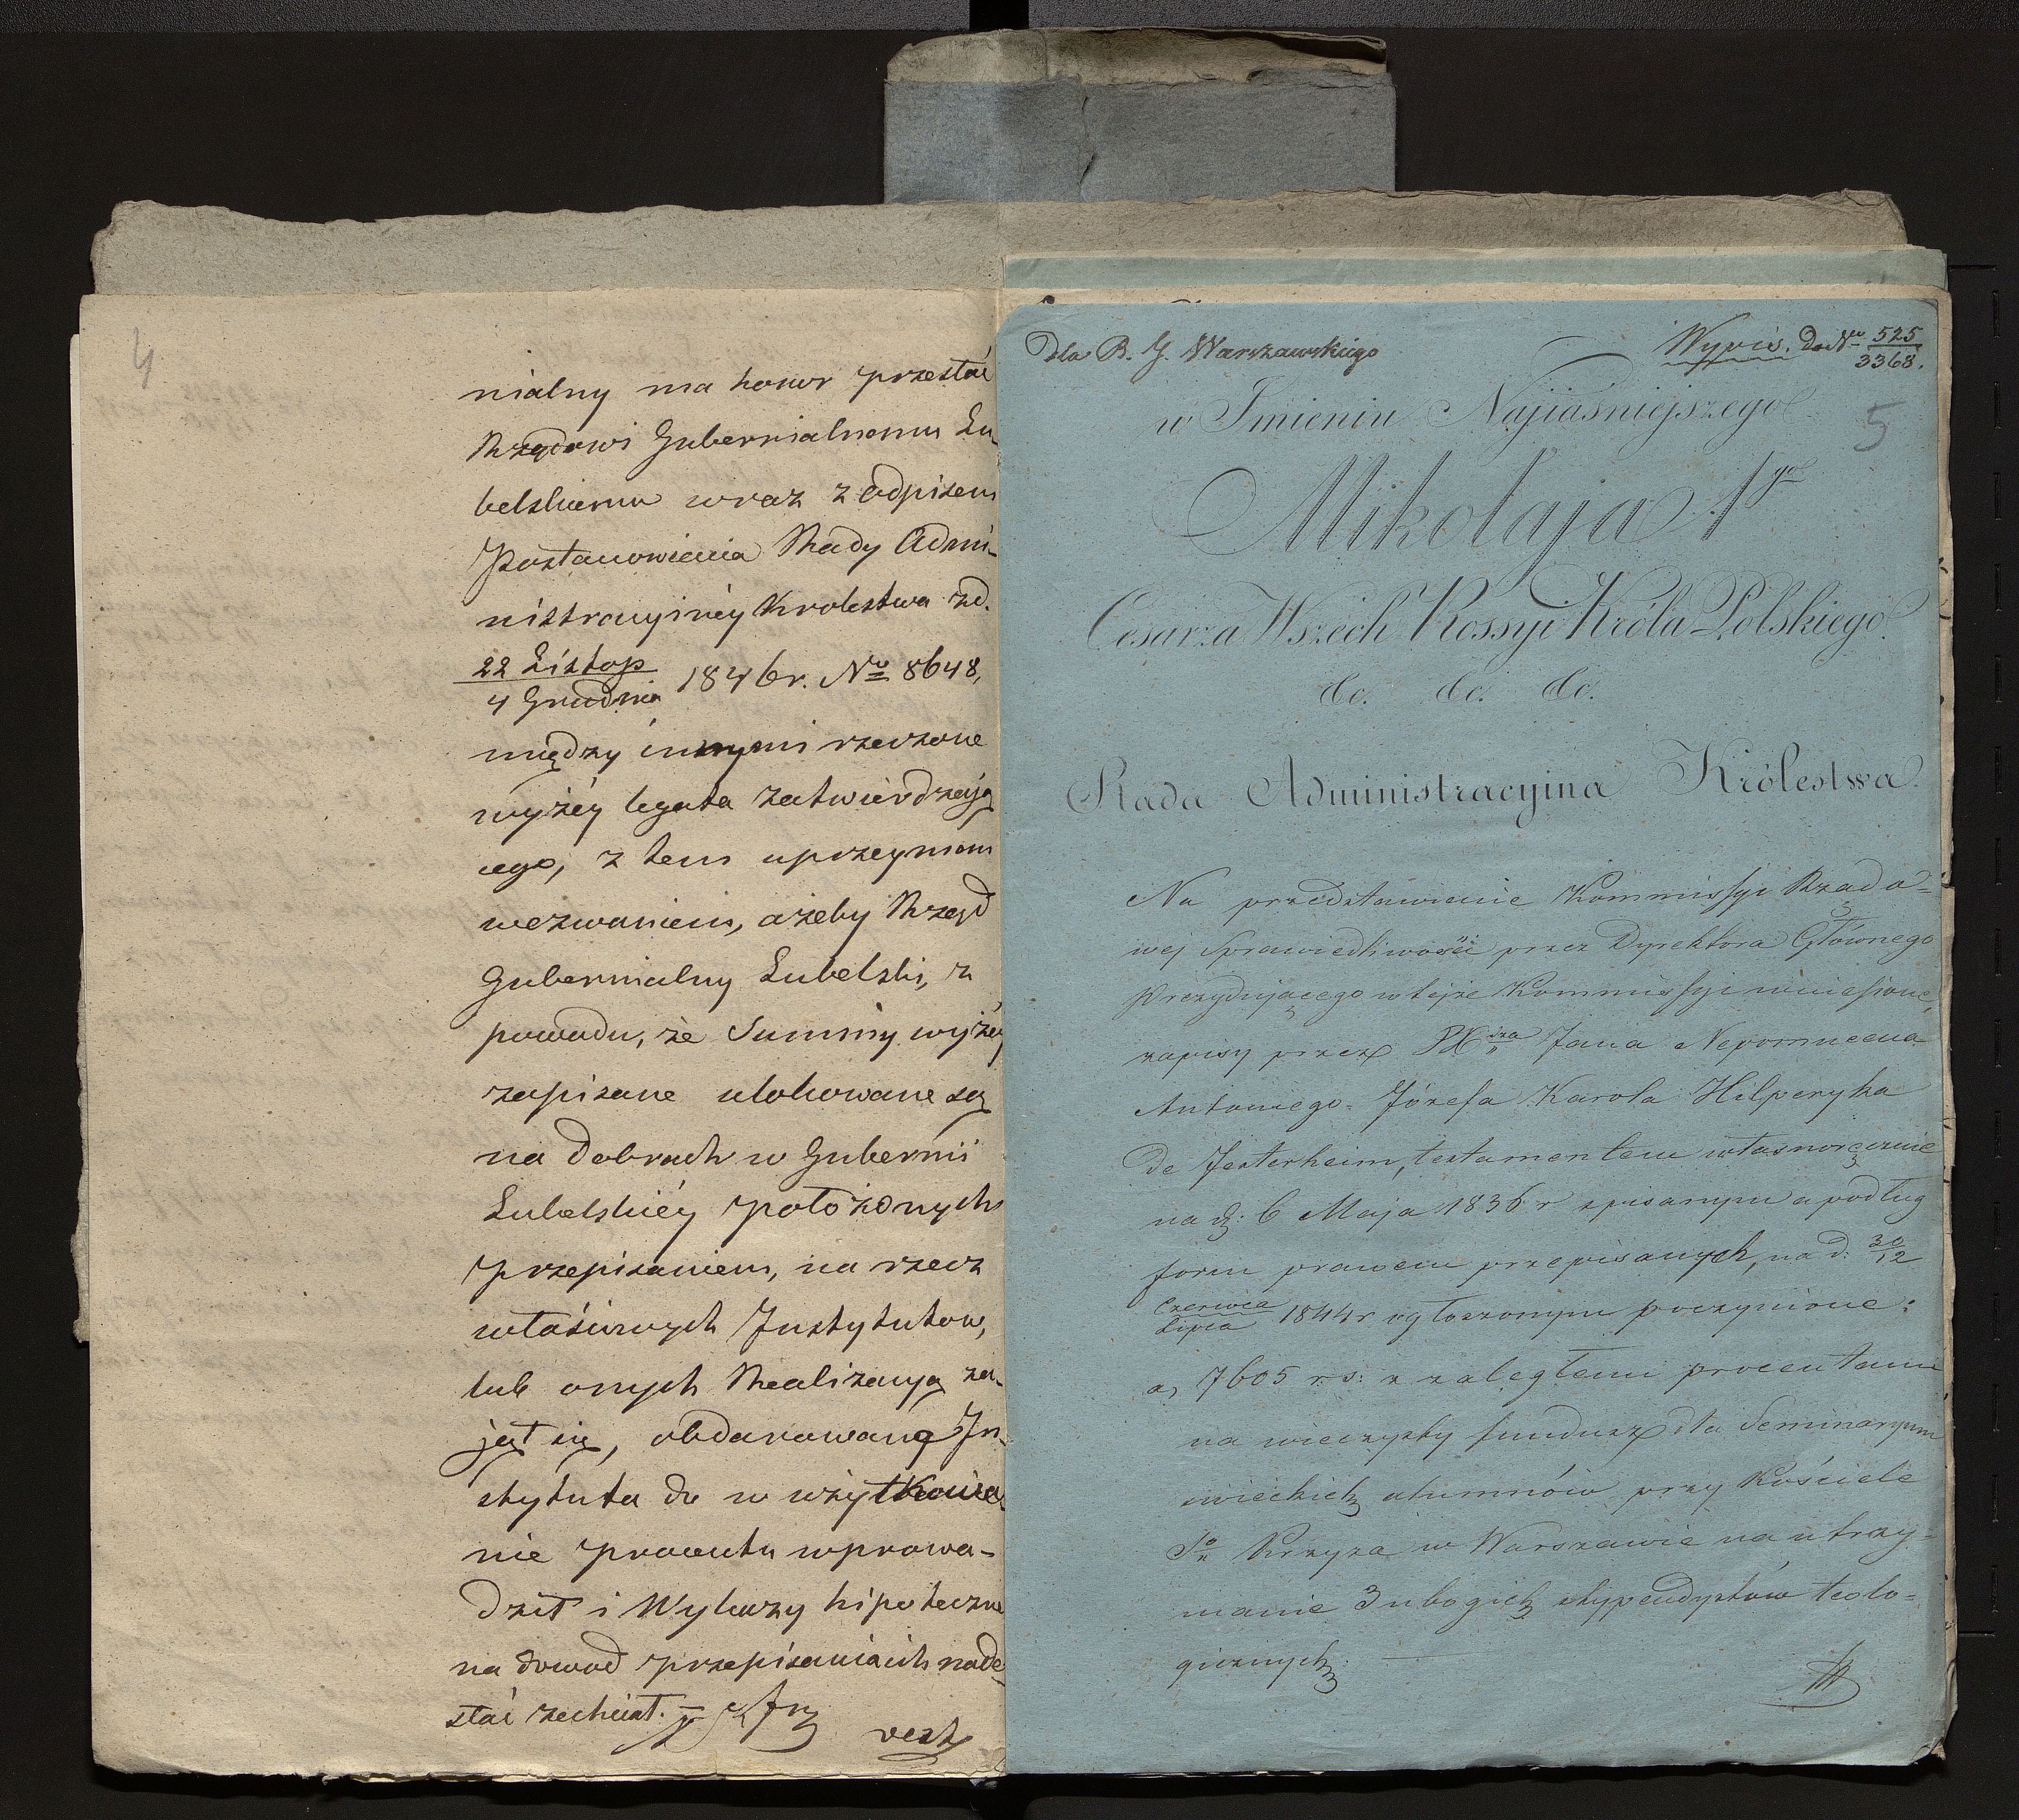 4
nialny ma honor przesłać
Rządowi Gubernialnemu Lu-
belskiemu wraz z odpisem
Postanowienia Rady Admi-
nistracyinéy Krolestwa zd.
22 Listop / 4 Grudnia 1846 r. No 8648,
między innymi rzeczone
wyżéy legata zatwierdzają
cego, z tem uprzeymem
wezwaniem, ażeby Rząd
Gubernialny Lubelski, z
powodu, że Summy wyżéy
zapisane ulokowane są
na Dobrach w Gubernii
Lubelskiéy położonych
przepisaniem, na rzecz
właściwych Instytutow,
lub onych Realizacyą za-
jął się, obdarowane In-
stytuta do w użytkowa-
nie procentu wprowa-
dził i Wykazy hipoteczne
na dowod przepisania ich nade
słać zechciał. =
vert
Dla R. G. Warszawskiego
Wypis. Do No 525 / 3368.
5
w Imieniu Najjaśniejszego
Mikołaja 1go
Cesarza Wszech Rossyi Króla Polskiego
&c. &c. &c.
Rada Administracyjna Królestwa.
Na przedstawienie Kommissyi Rządo=
wej Sprawiedliwości przez Dyrektora Głównego
Prezydującego w tejże Kommissyi wniesione,
zapisy przez Jana Nepomucena
Antoniego Józefa Karola Hilperyka
de Jesterheim, testamentem własnoręcznie
na d: 6 Maja 1836 r spisanym a podług
form prawem przepisanych, na d: 30/12
Czerwca / Lipca 1844 r ogłoszonym poczynione:
a, 7605 rs: z zaległemi procentami
na wieczysty fundusz dla Seminaryum
świeckich alumnów przy Kościele
So Krzyża w Warszawie na utrzy=
manie 3 ubogich stypendystów teolo=
gicznych.